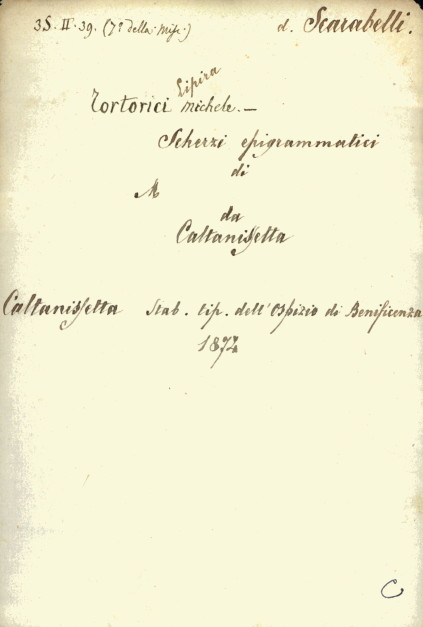 35. II. 39. (7ª della Misc.) d. Scarabelli.
Lipira
Tortorici Michele. —
Scherzi epigrammatici
di
M
da
Caltanissetta
Caltanissetta Stab. tip. dell'Ospizio di Beneficenza
1872
C